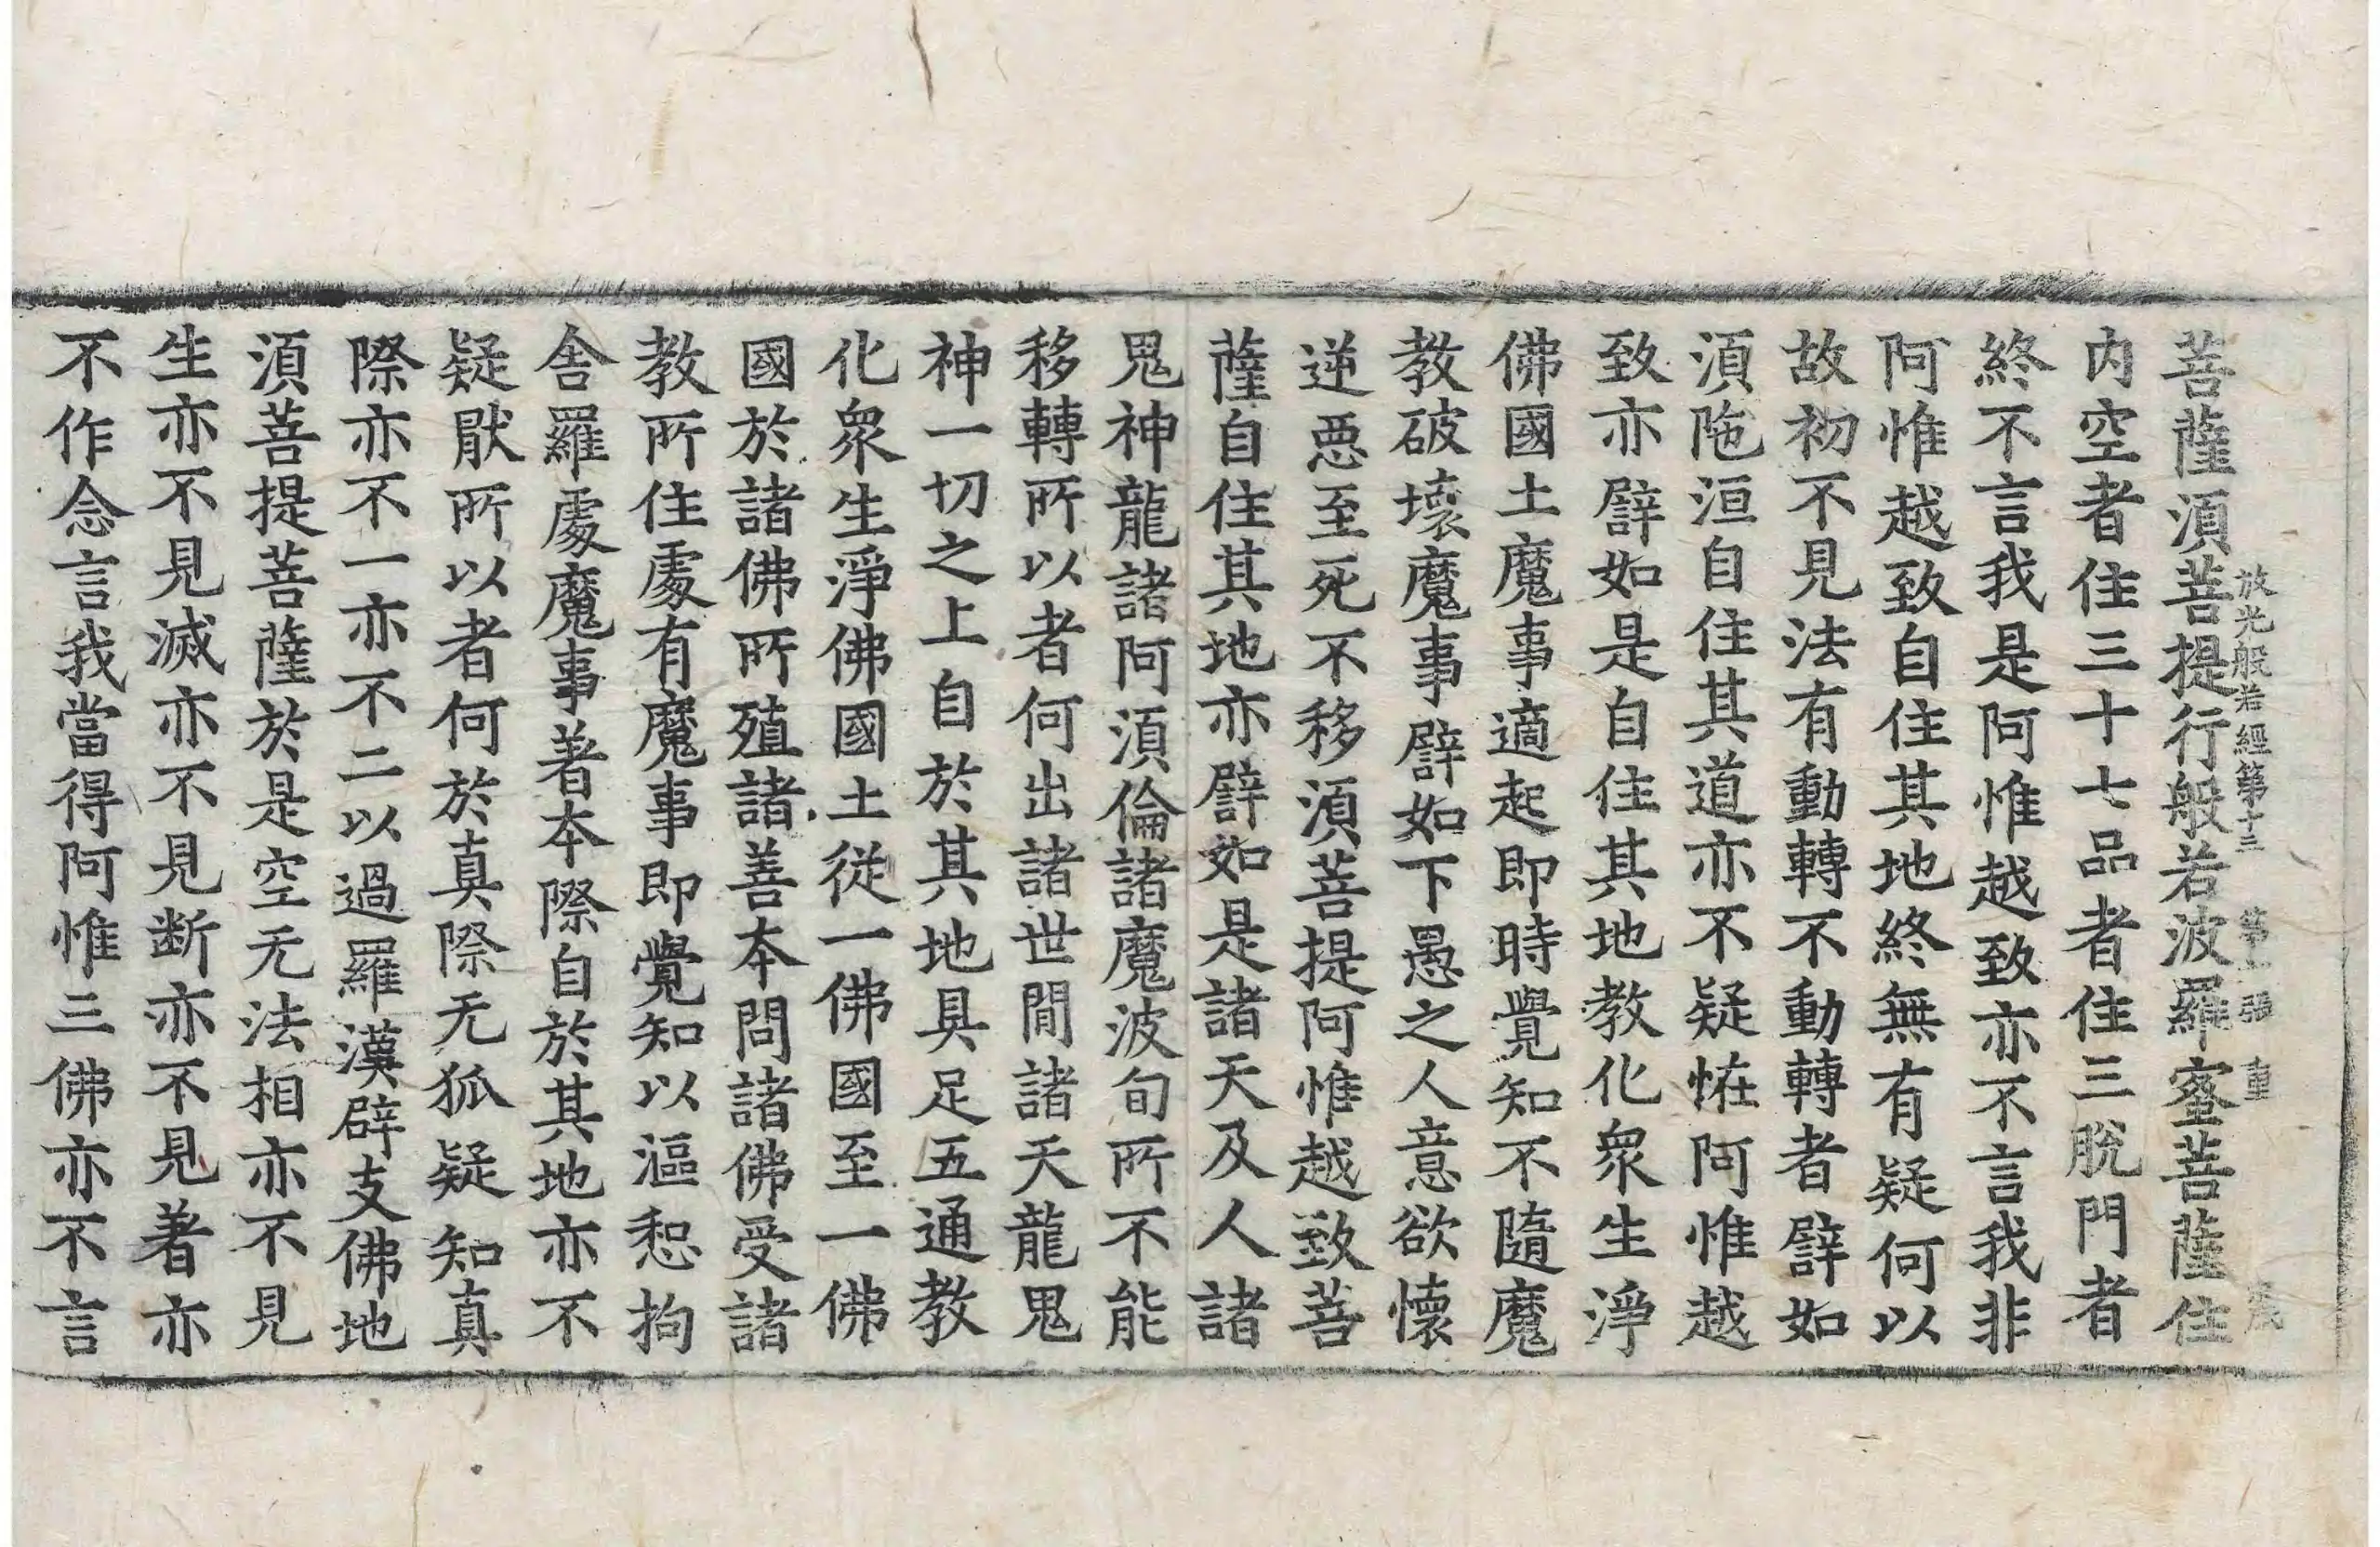 放光般若經第十三 第二張 重
菩薩須菩提行般若波羅蜜菩薩住
内空者住三十七品者住三脫門者
終不言我是阿惟越致亦不言我非
阿惟越致自住其地終無有疑何以
故初不見法有動轉不動轉者譬如
須陁洹自住其道亦不疑恠阿惟越
致亦譬如是自住其地教化衆生淨
佛國土魔事適起即時覺知不隨魔
教破壞魔事譬如下愚之人意欲懷
逆惡至死不移須菩提阿惟越致菩
薩自住其地亦譬如是諸天及人諸
鬼神龍諸阿須倫諸魔波旬所不能
移轉所以者何出諸世閒諸天龍鬼
神一切之上自於其地具足五通教
化衆生淨佛國土從一佛國至一佛
國於諸佛所殖諸善本問諸佛受諸
教所住處有魔事即覺知以漚惒拘
舍羅處魔事著本際自於其地亦不
疑猒所以者何於真際无狐疑知真
際亦不一亦不二以過羅漢辟支佛地
須菩提菩薩於是空无法相亦不見
生亦不見滅亦不見断亦不見著亦
不作念言我當得阿惟三佛亦不言